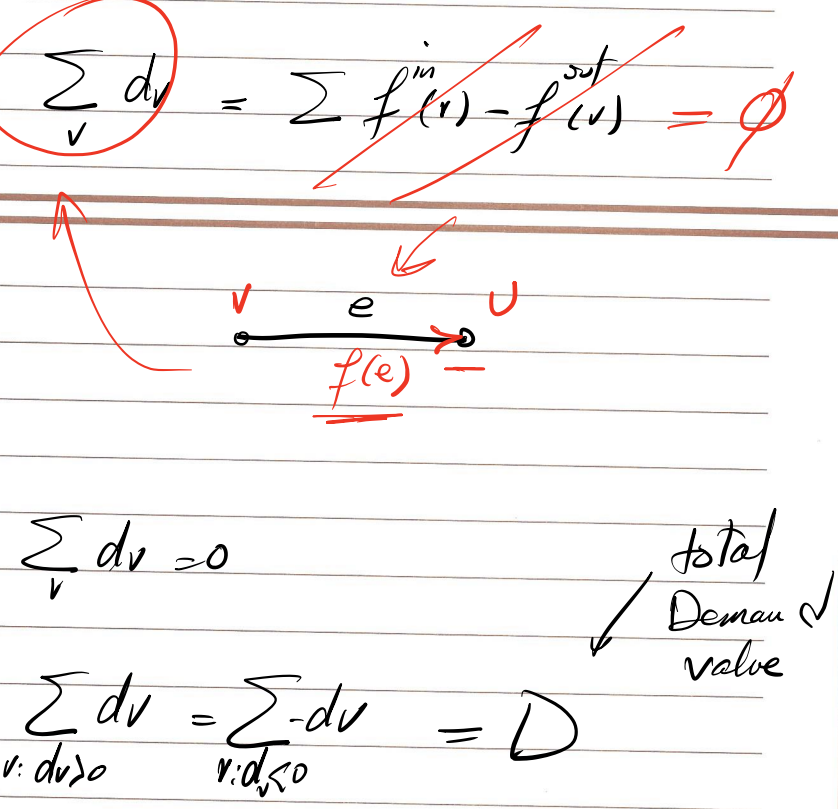 ∑_v dv = ∑ f^in(v) - f^out(v) = ϕ
v e U
f(e)
∑_v dv = 0
total
Demand
value
∑_{v: dv>0} dv = ∑_{v: dv<0} -dv = D